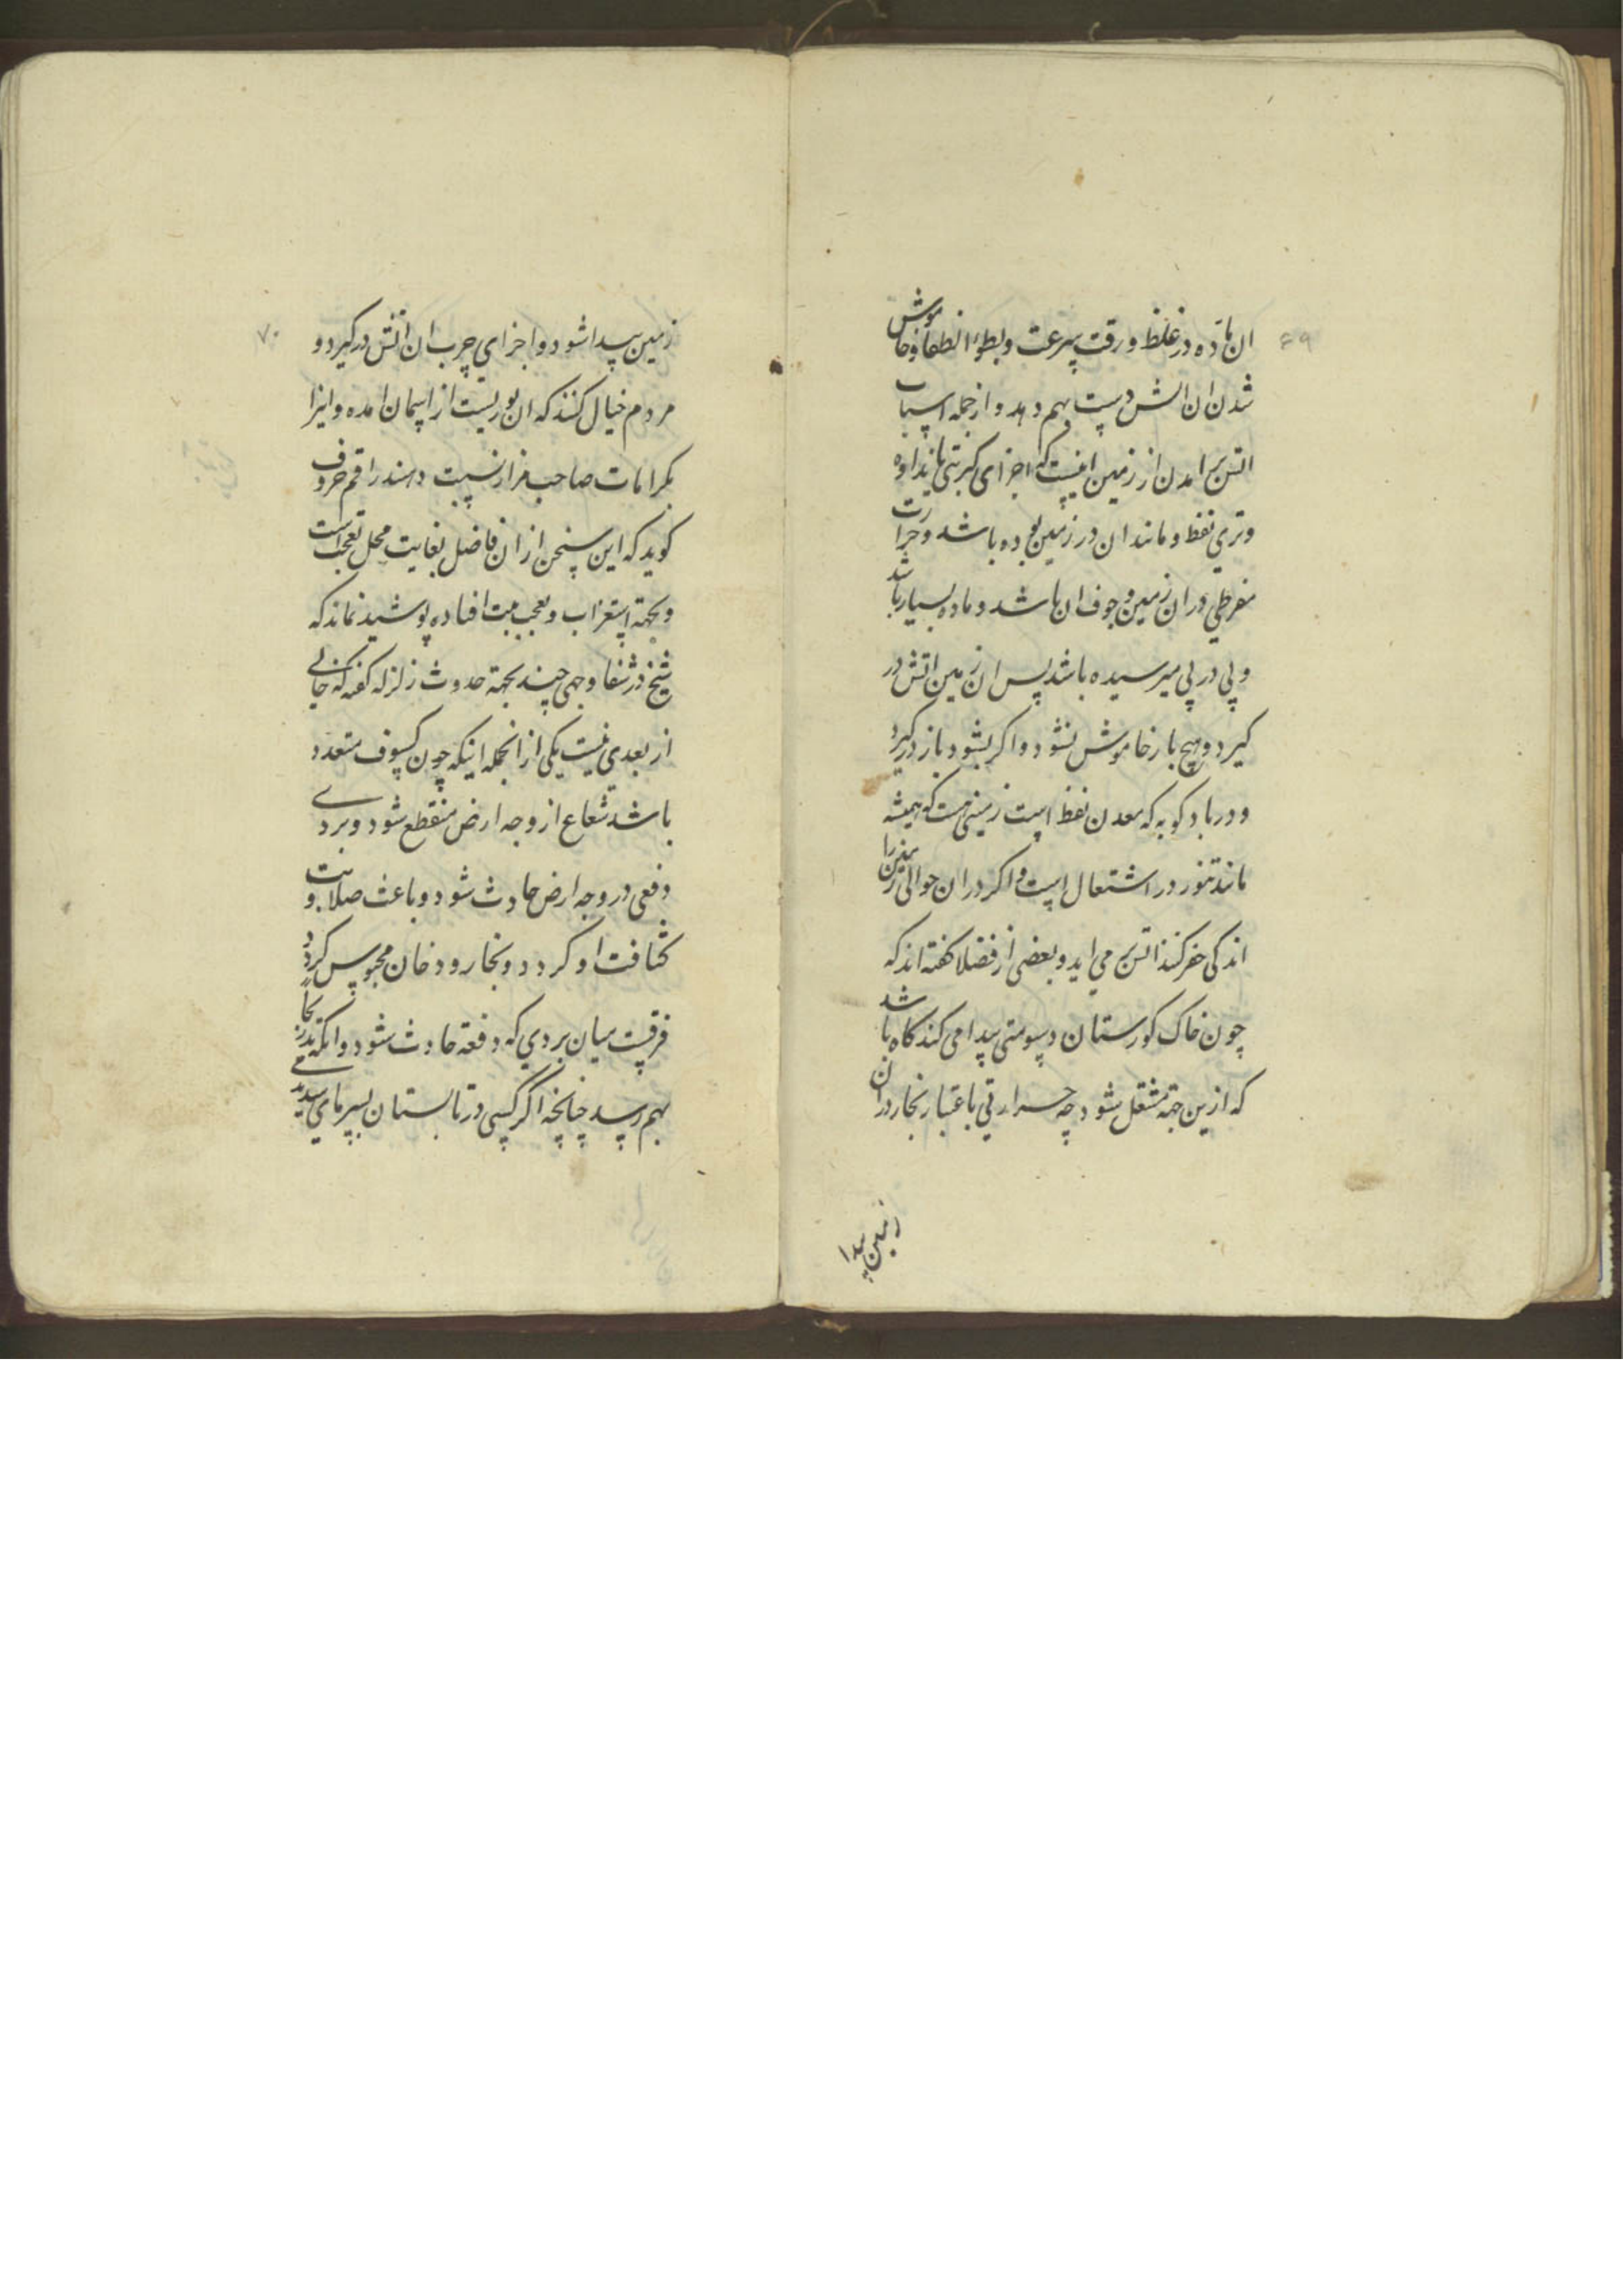 ۶۹
ان ماده در غلظ و رقت بسرعت و بطوء انطفا و خاموش
شدن ان اتش دست بهم دهد و از جمله اسباب
اتش برامدن از زمین اینست که اجزای کبریتی مانند
وتري نفظ و مانند ان در زمین بوده باشد و حرارت
مفرطي در ان زمین و جوف ان باشد و ماده بسیار باشد
و پی در پی میرسیده باشد پس ان زمین اتش در
کیرد و هیچ بار خاموش نشود و اکر بشود باز در کیرد
و در بادکوبه که معدن نفظ است زمینی هست که همیشه
مانند تنور در اشتعال است و اکر در ان حوالی زمین را
اندکی حفر کنند اتش بر می اید و بعضی از فضلا کفته اند که
چون خاک کورستان دسومتی پیدا می کند کاه باشد
که ازین جهة مشتعل شود چه حرارتی باعتبار بخار در ان
زمین پیدا
۷۰
زمین پیدا شود و اجزاي چرب ان اتش در کیرد و
مردم خیال کنند که ان نوریست از اسمان امده و انرا
بکرامات صاحب مزار نسبت دهند راقم حروف
کوید که این سخن از ان فاضل بغایت محل تعجب است
و بجهة استغراب و تعجب مبت افتاده پوشیده نماند که
شیخ در شفا وجهی چند بجهة حدوث زلزله کفته که خالی
از بعدي نیست یکی از انجمله اینکه چون کسوف متعدد
باشد شعاع از وجه ارض منقطع شود و بردے
دفعی در وجه ارض حادث شود و باعث صلابت و
کثافت او کردد و بخار و دخان محبوس کردد
فرقست میان بردي که دفعة حادث شود و انکه بتدریج
بهم رسد چنانچه اکر کسی در تابستان بسرماي شدید